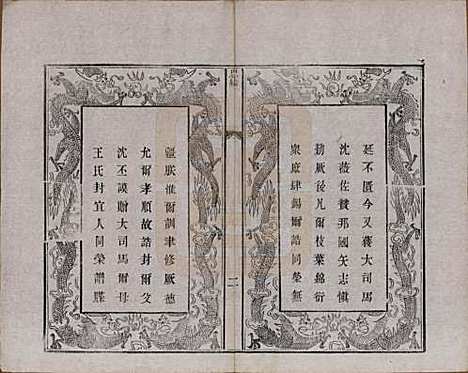 廷不匱今又蔣大司馬
沈薇佐贊那國矢志愼
籾厥後凡爾枝葉綿衍
衆庶肆錫爾誥同榮無
誥
二
疆朕惟爾訓聿修厥德
允爾孝順故誥封爾父
沈丕謨贈大司馬爾母
王氏封宜人同榮譜牒